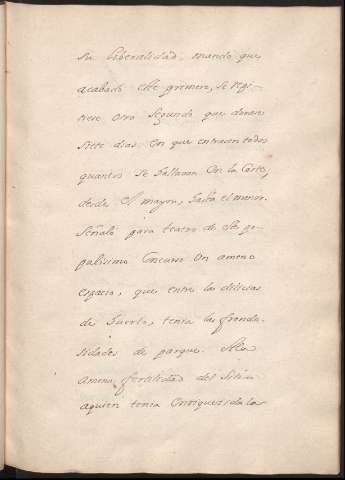 su Liberalidad, mandó que
acabado este primero, se repi-
tiese otro segundo que durase
siete dias, en que entrasen todos
quantos se hallavan en la Corte,
desde el mayor, hasta el menor.
Señaló para teatro de este po-
pulisimo concurso un ameno
espacio, que entre las delicias
de huerto, tenia las frondo-
sidades de parque. A la
amena fertilidad del Sitio
a quien tenia enriquezida la